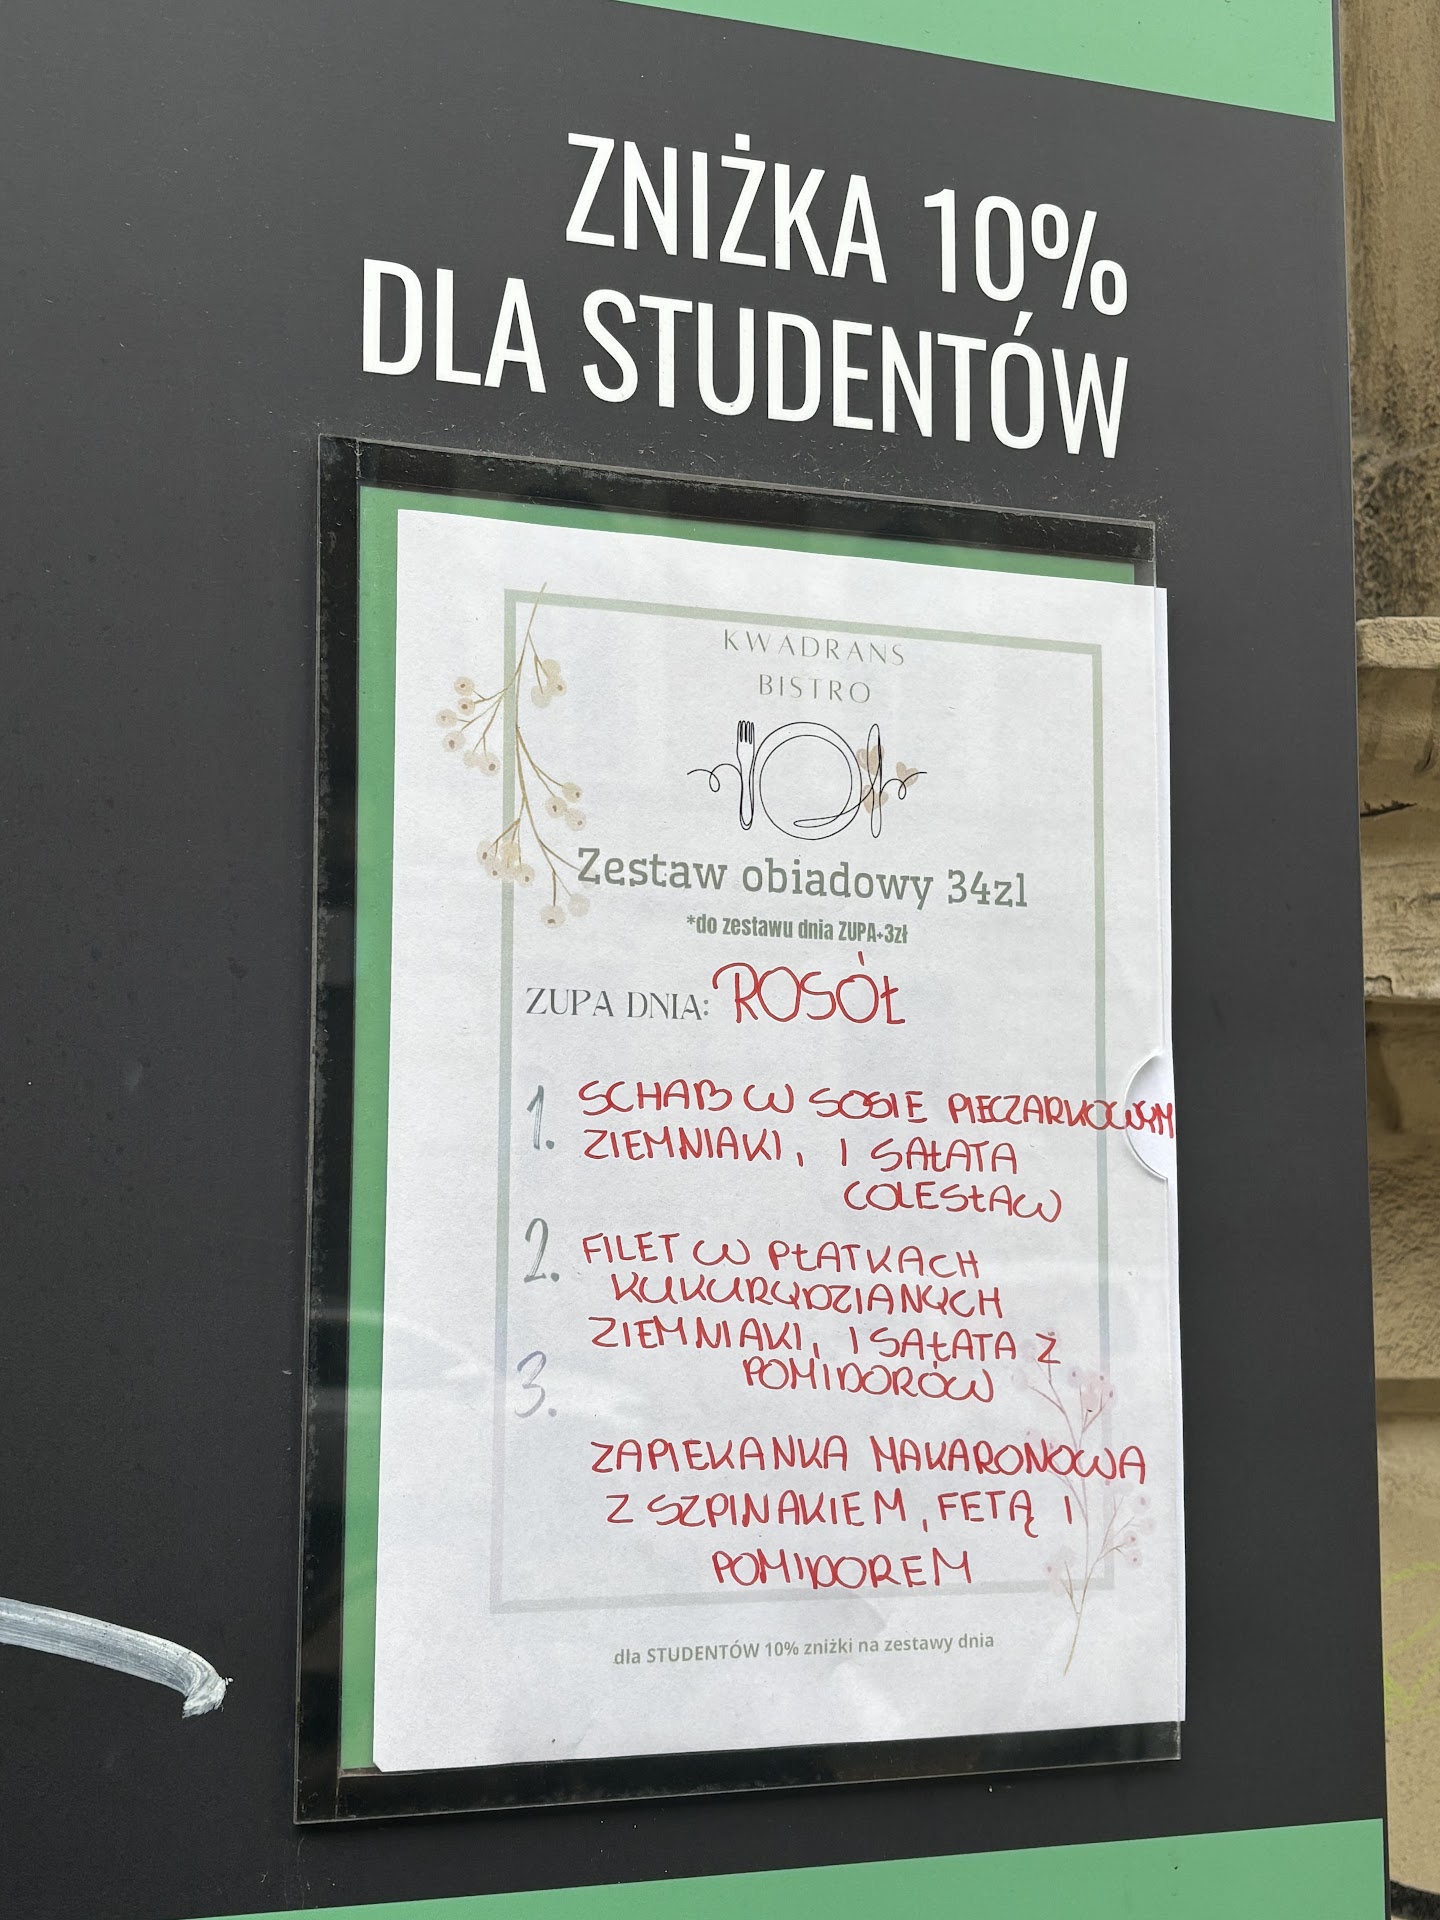 ZNIŻKA 10%
DLA STUDENTÓW
KWADRANS
BISTRO
Zestaw obiadowy 34zl
*do zestawu dnia ZUPA+3zł
ZUPA DNIA: ROSÓŁ
1. SCHAB W SOSIE PIECZARKOWYM
ZIEMNIAKI, I SAŁATA
COLESŁAW
2. FILET W PŁATKACH
KUKURYDZIANYCH
ZIEMNIAKI, I SAŁATA Z
POMIDORÓW
3.
ZAPIEKANKA MAKARONOWA
Z SZPINAKIEM, FETĄ I
POMIDOREM
dla STUDENTÓW 10% zniżki na zestawy dnia